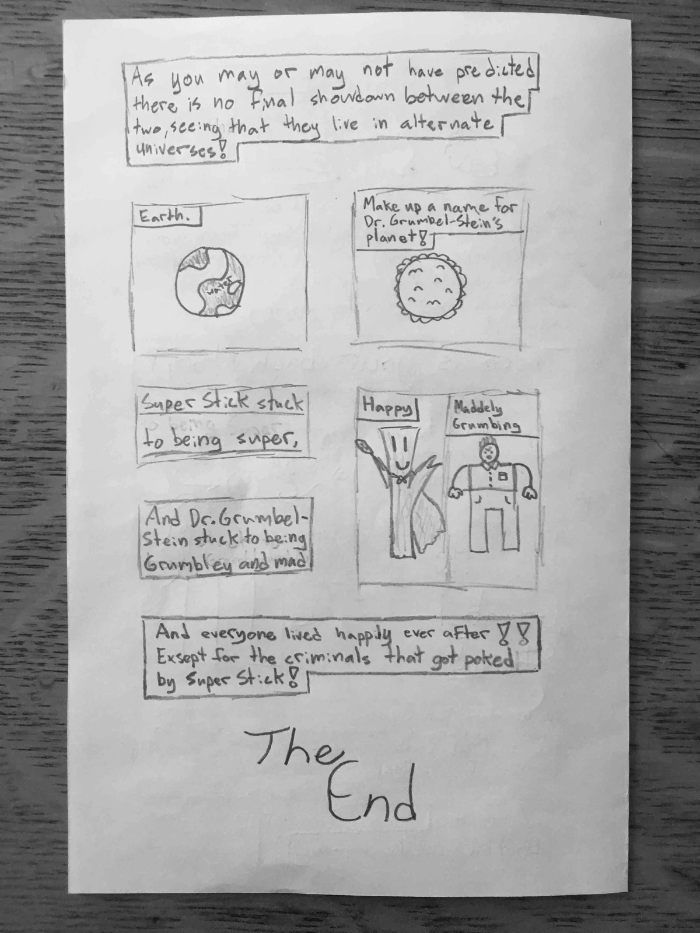 As you may or may not have predicted
there is no final showdown between the
two, seeing that they live in alternate
universes!
Earth.
Make up a name for
Dr. Grumbel-Stein's
planet!
Super Stick stuck
to being super,
And Dr. Grumbel-
Stein stuck to being
Grumbley and mad
Happy
Maddely
Grumbing
And everyone lived happily ever after!!
Exsept for the criminals that got poked
by Super Stick!
The
End